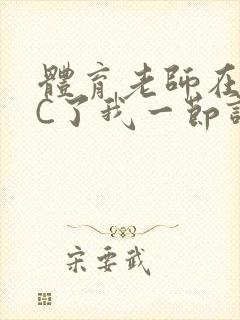 體育老師在
C了我一節
宋要武